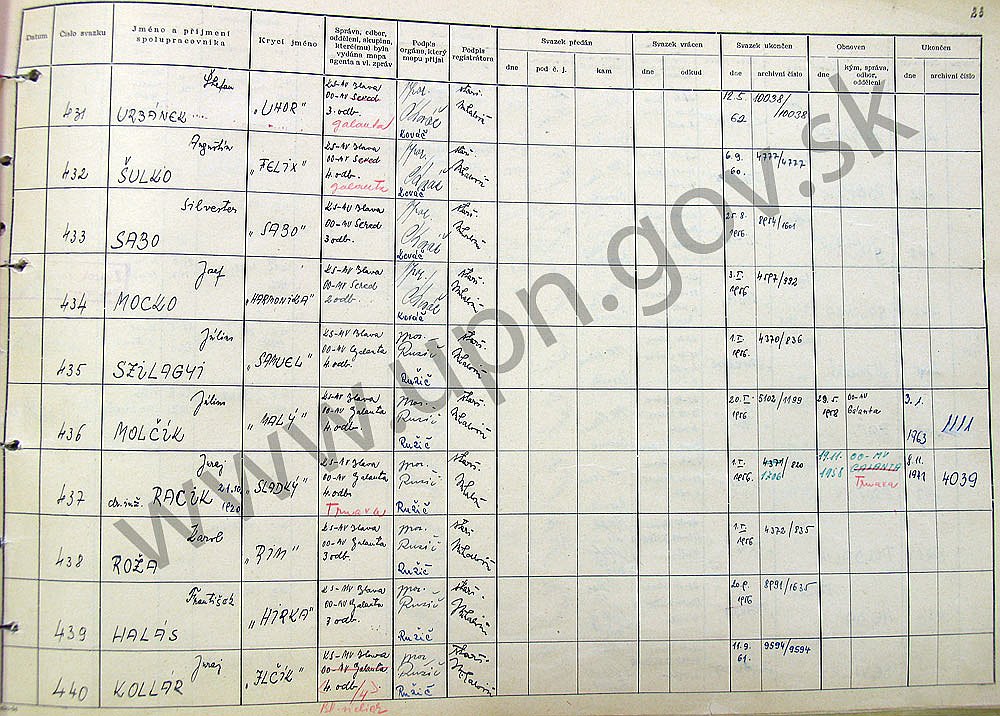 23
Datum
Číslo svazku
Jméno a příjmení
spolupracovníka
Krycí jméno
Správa, odbor,
oddělení, skupina,
které(mu) byla
vydána mapa
agenta a vl. zpráv
Podpis
orgánu, který
mapu přijal
Podpis
registrátora
Svazek předán
dne
pod č. j.
kam
Svazek vrácen
dne
odkud
Svazek ukončen
dne
archivní číslo
Obnoven
dne
kým, správa,
odbor,
oddělení
Ukončen
dne
archivní číslo
431
Štefan
URBÁNEK
„UHOR"
KS-MV Blava
OO-MV Sereď
3. odb.
Galanta
Kováč
12.5.
62
10038/
10038
432
Augustín
ŠULKO
„FELIX"
KS-MV Blava
OO-MV Sereď
4. odb.
Galanta
Kováč
6.9.
60.
4777/4777
433
Silvester
SABO
„SABO"
KS-MV Blava
OO-MV Sereď
3 odb.
Kováč
25.8.
1956
8954/1601
434
Jozef
MOCKO
„HARMONIKA"
KS-MV Blava
OO-MV Sereď
2 odb.
Kováč
3.I.
1956
4597/992
435
Július
SZILAGYI
„SAMUEL"
KS-MV Blava
OO-MV Galanta
4. odb.
por.
Ružič
Ružič
1.I.
1956.
4370/836
436
Július
MOLČÍK
„MALÝ"
KS-MV Blava
OO-MV Galanta
4. odb.
por.
Ružič
Ružič
20.I.
1956
5102/1199
29.5.
1958
OO-MV
Galanta
3.1.
1963
1111
437
Juraj
dr. inž. RAČÍK
1920
„SLADKÝ"
KS-MV Blava
OO-MV Galanta
4. odb
Trnava
por.
Ružič
Ružič
1.I.
1956.
4371/820
19.11.
1958
OO-MV
GALANTA
Trnava
8.11.
1971
4039
438
Karol
ROŽA
„RÍM"
KS-MV Blava
OO-MV Galanta
3 odb.
por.
Ružič
Ružič
1.I.
1956
4372/835
439
František
HALÁS
„HIRKA"
KS-MV Blava
OO-MV Galanta
3 odb.
por.
Ružič
Ružič
20.9.
1956
8991/1635
440
Juraj
KOLLÁR
„ILČÍK"
KS-MV Blava
OO-MV Galanta
4. odb
por.
Ružič
Ružič
11.9.
61.
9594/9594
www.upn.gov.sk